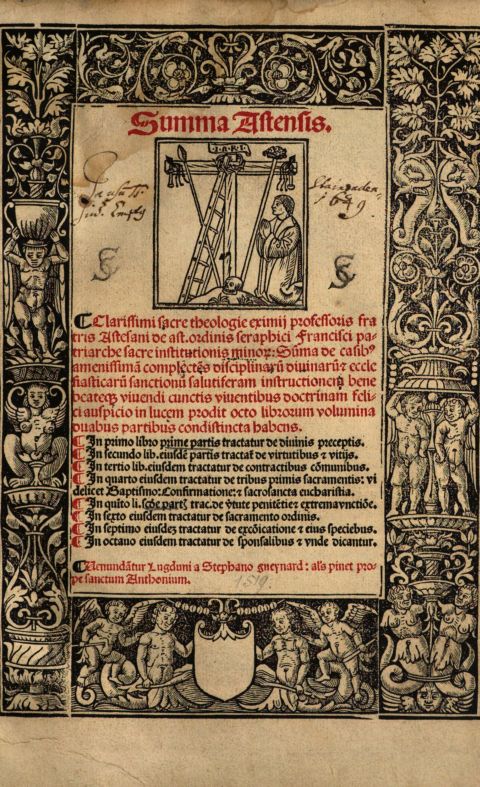 Summa Astensis.
I.N.R.I
1649.
¶Clarissimi sacre theologie eximij professoris fra
tris Astesani de ast. ordinis seraphici Francisci pa⸗
triarche sacre institutionis minoꝝ: Sūma de casibꝰ
amenissimā complectēs disciplinarū diuinarū ⁊ eccle
siasticarū sanctionū salutiferam instructionem bene
beateqꝫ viuendi cunctis viuentibus doctrinam feli⸗
ci auspicio in lucem prodit octo librorum volumina
duabus partibus condistincta habens.
¶In primo libro prime partis tractatur de diuinis preceptis.
¶In secundo lib. eiusdē partis tractaƭ de virtutibus ⁊ vitijs.
¶In tertio lib. eiusdem tractatur de contractibus cōmunibus.
¶In quarto eiusdem tractatur de tribus primis sacramentis: vi
delicet Baptismo: Confirmatione: ⁊ sacrosancta eucharistia.
¶In quīto li. scḋe partꝭ trac. de v̄tute penitētie ⁊ extremavnctiōe.
¶In sexto eiusdem tractatur de sacramento ordinis.
¶In septimo eiusdeꝫ tractatur de excōicatione ⁊ eius speciebus.
¶In octauo eiusdem tractatur de sponsalibus ⁊ vnde dicantur.
¶Uenundātur Lugduni a Stephano gueynard: als pinet pro
pe sanctum Anthonium.
1519.